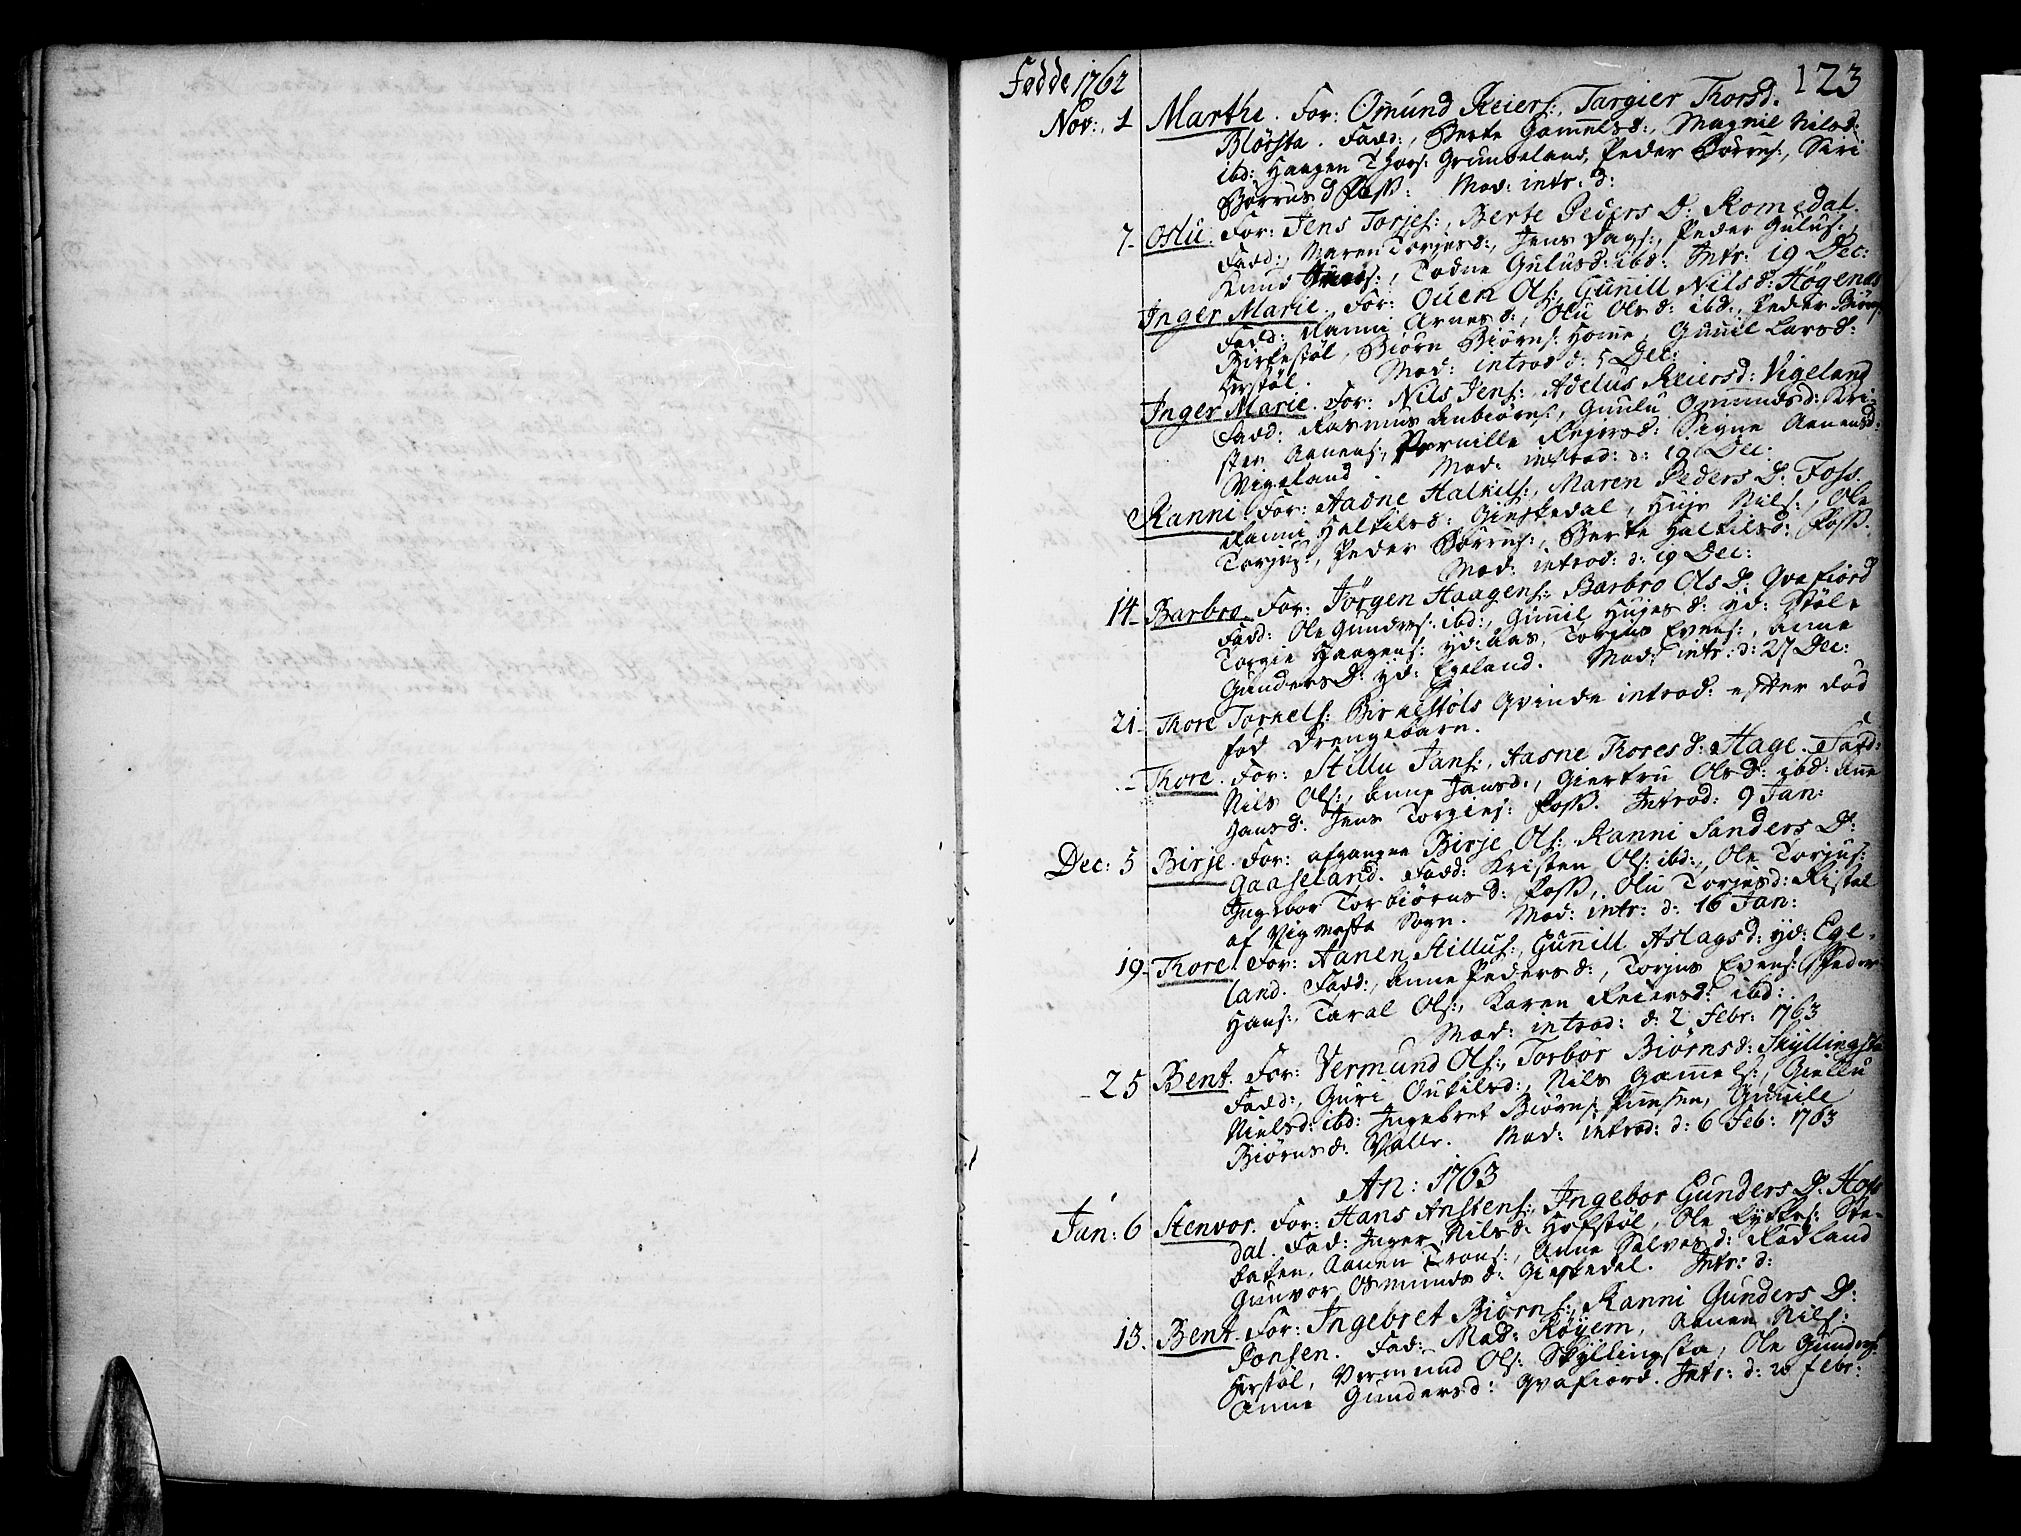 Fødde 1762
123
Nov:. 1 Marthe. For: Omund Reiers:, Targier Thorsd.
Blørsta. Fadd:, Berte Gamelsd:, Magnil Nilsd:
ibd: Haagen Thors: Grundeland, Peder Børres:, Siri
Børrusd Foss: Mod: intr: d:
7- Oslu. For: Jens Torjes:, Berte Peders D: Romedal.
Fadd:, Maren Torjesd:, Jens Dags:, Peder Gulus:,
Knud, Todne Gulusd: ibd: Intr: 19 Dec:
Inger Marie. For: Ouen Ols:, Gunill Nilsd: Høgenes
Fadd: Ranni Arnesd:, Olu Olsd: ibd:, Peder Biørns:
Birkestøl, Biørn Biørns: Home, Gunil Larsd:
Herstøl. Mod: introd d: 5 Dec:
Inger Marie. For: Nils Jens:, Adelus Reiersd: Vigeland
Fadd: Rasmus Anbiørns:, Guulu Omundsd: Kri-
sten Aanens:, Pernille Rejersd: Signe Aanensd:
Vigeland. Mod: introd: d: 19 Dec:
Ranni. For: Aadne Halkils:, Maren Peders D: Foss.
Ranni Halkilsd: Gieskedal, Huje Nils:, Ole
Torjus:, Peder Børres:, Berte Halkilsd: Foss.
Mod: introd: d: 19 Dec:
14- Barbro. For: Jørgen Haagens: Barbro Ols D: Qvafiord
Fadd: Ole Gunders: ibd:, Gunil Hujesd: yd: Støle
Torgie Haagens: yd: Aas, Torjus Evens:, Anne
Gunders D: yd: Egeland. Mod: intr: d: 27 Dec:
21- Thore Torkels: Birkestøls Qvinde introd: efter død
fød Drengebarn.
- Thore. For: Stillu Jans:, Aasne Thoresd: Hage. Fadd:
Nils Ols:, Anne Jansd:, Giertru Olsd: ibd: Anne
Hansd: Jens Torgies: Foss. Introd: 9 Jan:
Dec: 5 Birje. For: afgangne Birje Ols: Ranni Sanders D:
Gaaseland. Fadd: Kristen Ols: ibd:, Ole Torjus:
Ingebor Torbiørnsd: Foss, Olu Torjusd: Ristøl
af Vigmosta Sogn. Mod: intr: d: 16 Jan:
19- Thore. For: Aanen Stillus:, Gunill Aslagsd: yd: Ege-
land. Fadd:, Anne Pedersd:, Torjus Evens: Peder
Hans:, Taral Ols:, Karen Reiersd: ibd:
Mod: introd: d: 2 Febr: 1763
- 25 Bent. For: Vermund Ols:, Torbor Biørnsd: Skyllingsta
Fadd:, Guri Oukilsd:, Nils Gamels:, Giellu
Nielsd: ibd: Ingebret Biørns: Ponsen, Gunile
Biørnsd: Valle. Mod: introd: d: 6 Feb: 1763
An: 1763
Jan: 6 Stenvor. For: Hans Anstens:, Ingebor Gunders D: Hofs
dal. Fad: Inger Nilsd: Hofstøl, Ole Lykkes: Ste-
baken, Aanen Trons:, Anne Salvesd: Rødland
Gunvor Osmundsd: Gieskedal. Intr: d:
13. Bent. For: Ingebret Biørns:, Ranni Gunders D:
Ponsen. Fad: Mad: Røyem, Aanen Nils:
Herstøl, Vermund Ols: Skyllingsta, Ole Gunders:
Anne Gundersd: Qvafiord. Intr: d: 20 febr: